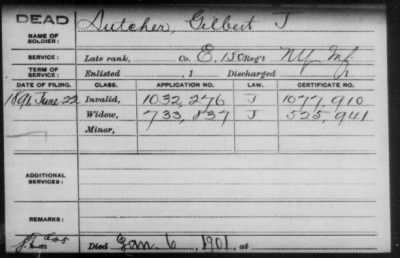 DEAD
NAME OF SOLDIER: Dutcher, Gilbert J
SERVICE: Late rank, Co. E, 150 Reg't NY Inf
TERM OF SERVICE: Enlisted , 1 Discharged , 1
DATE OF FILING. CLASS. APPLICATION NO. LAW. CERTIFICATE NO.
1891 June 22 Invalid, 1032,276 J 1077,910
Widow, 733,837 J 525,941
Minor,
ADDITIONAL SERVICES:
REMARKS:
Died Jan. 6, 1901, at